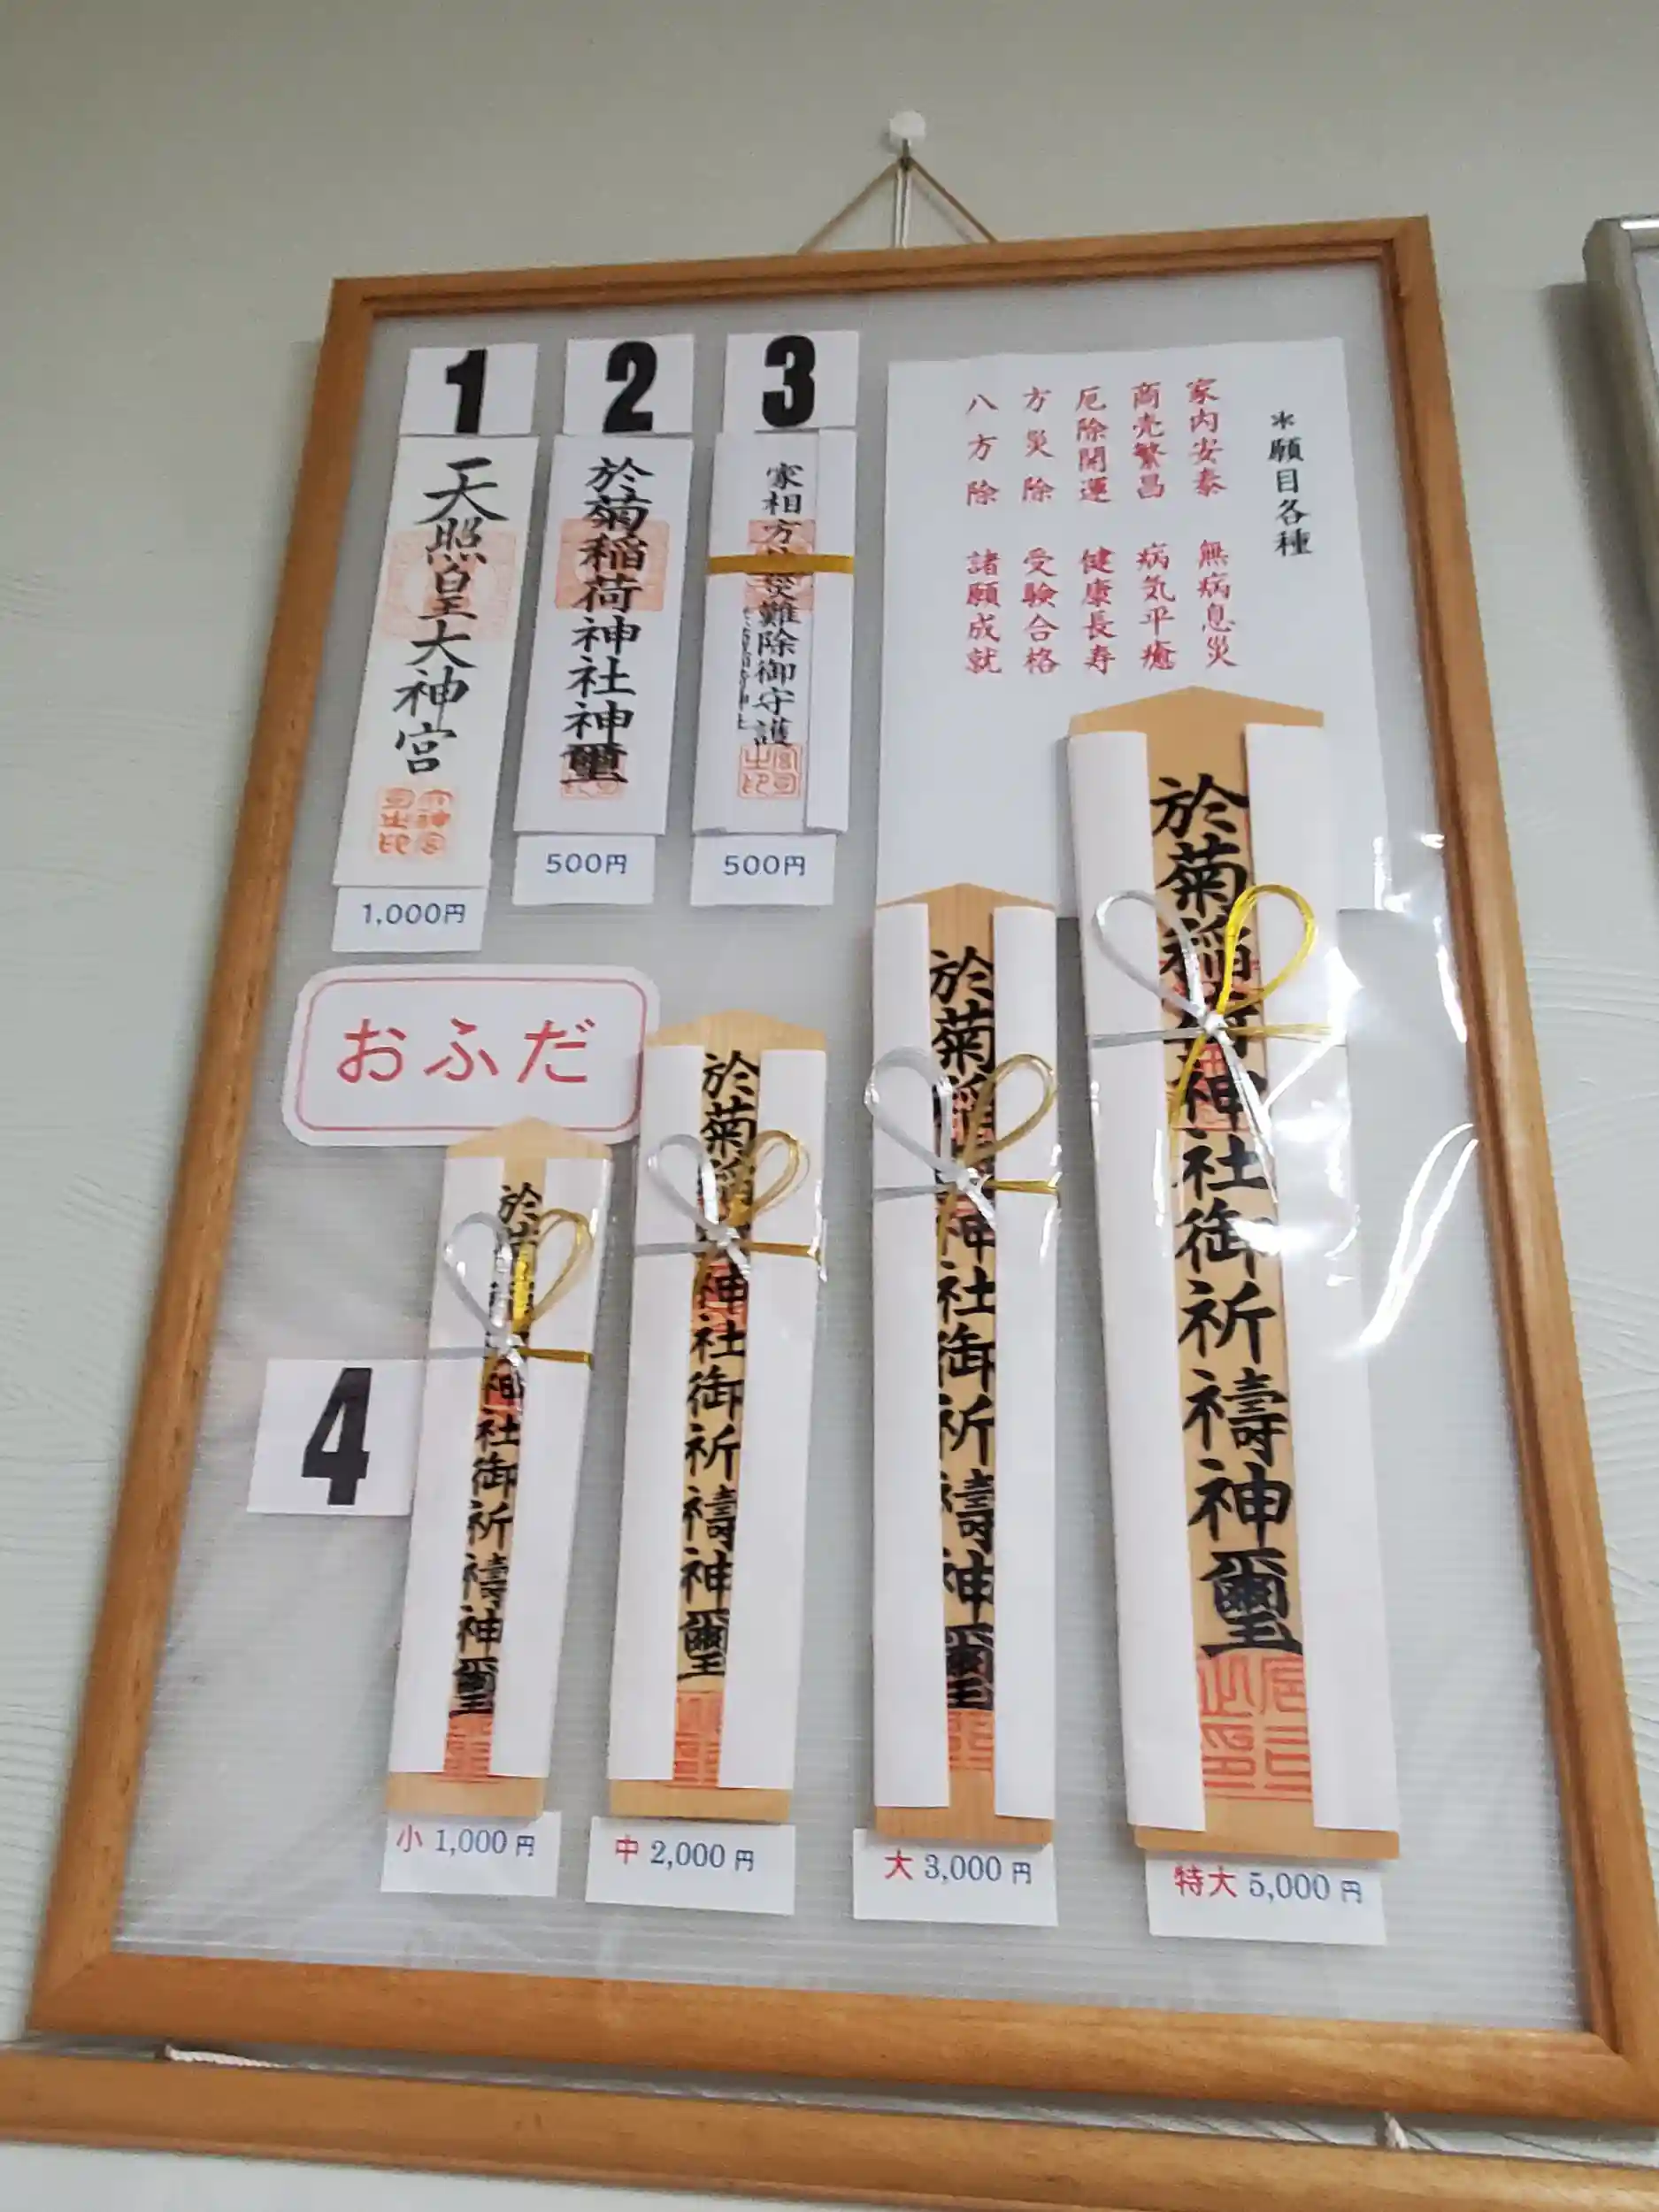 1
天照皇大神宮
1,000円
2
於菊稲荷神社神璽
500円
3
家相方
災難除御守護
500円
＊願目各種
家内安泰 無病息災
商売繁昌 病気平癒
厄除開運 健康長寿
方災除 受験合格
八方除 諸願成就
おふだ
4
於
神社御祈禱神璽
小 1,000円
於菊稲
神社御祈禱神璽
中 2,000円
於菊稲
神社御祈禱神璽
大 3,000円
於菊稲荷神社御祈禱神璽
特大 5,000円